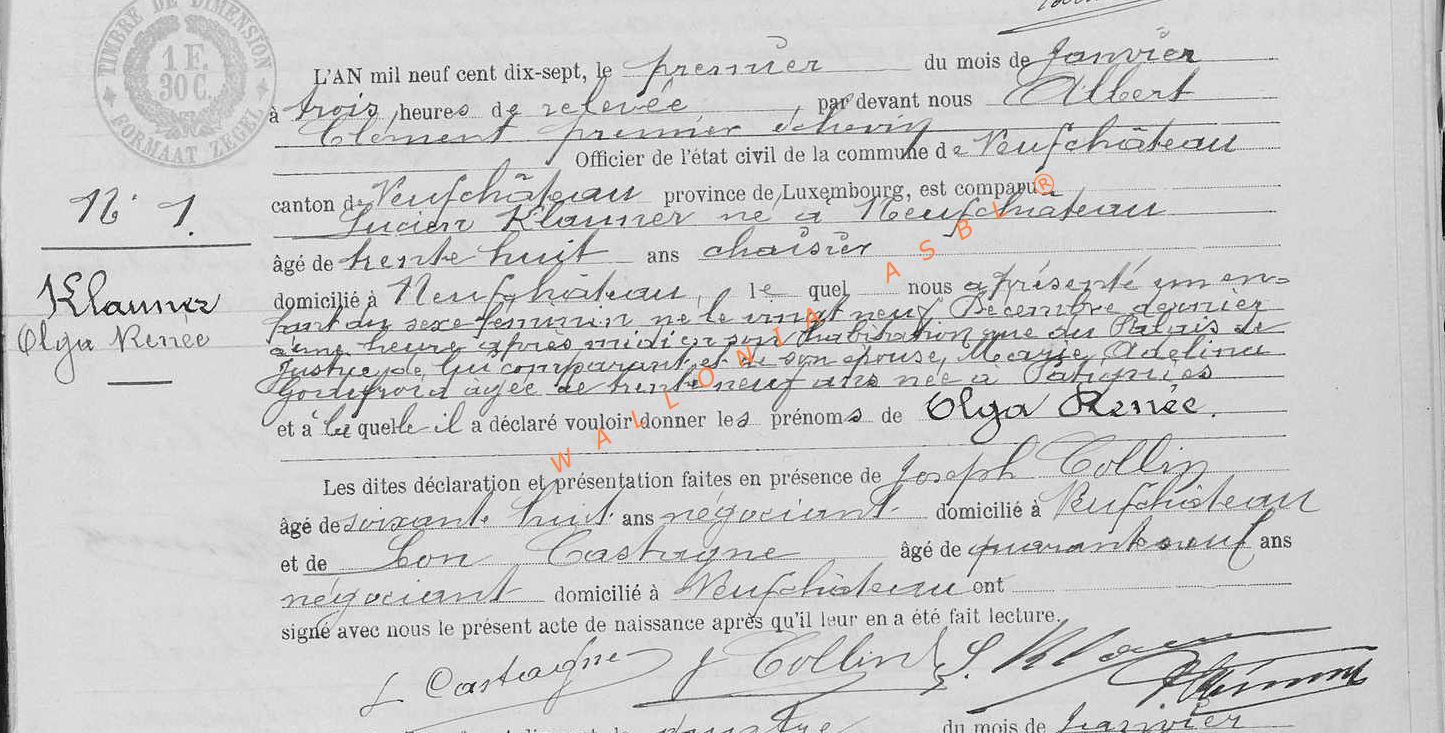 TIMBRE DE DIMENSION
1 F.
30 C.
FORMAAT ZEGEL
L'AN mil neuf cent dix-sept, le premier du mois de Janvier
à trois heures de relevée, par devant nous Albert
Clément premier échevin
Officier de l'état civil de la commune de Neufchâteau
N° 1.
canton de Neufchâteau province de Luxembourg, est comparu
Lucien Klauner né à Neufchâteau
âgé de trente huit ans chaisier
Klauner
Olga Renée
domicilié à Neufchâteau, le quel nous a présenté un en=
fant du sexe féminin né le vingt neuf Décembre dernier
à une heure après midi en son habitation rue du Palais de
Justice, de lui comparant et de son épouse, Marie Adelina
Godefroid agée de trente neuf ans née à Patignies
et à la quelle il a déclaré vouloir donner les prénoms de Olga Renée.
Les dites déclaration et présentation faites en présence de Joseph Collin
âgé de soixante huit ans négociant domicilié à Neufchâteau
et de Léon Castagne âgé de quarante neuf ans
négociant domicilié à Neufchâteau ont
signé avec nous le présent acte de naissance après qu'il leur en a été fait lecture.
L Castaigne J Collin L. Klauner
du mois de Janvier
WALLONIA ASBL®